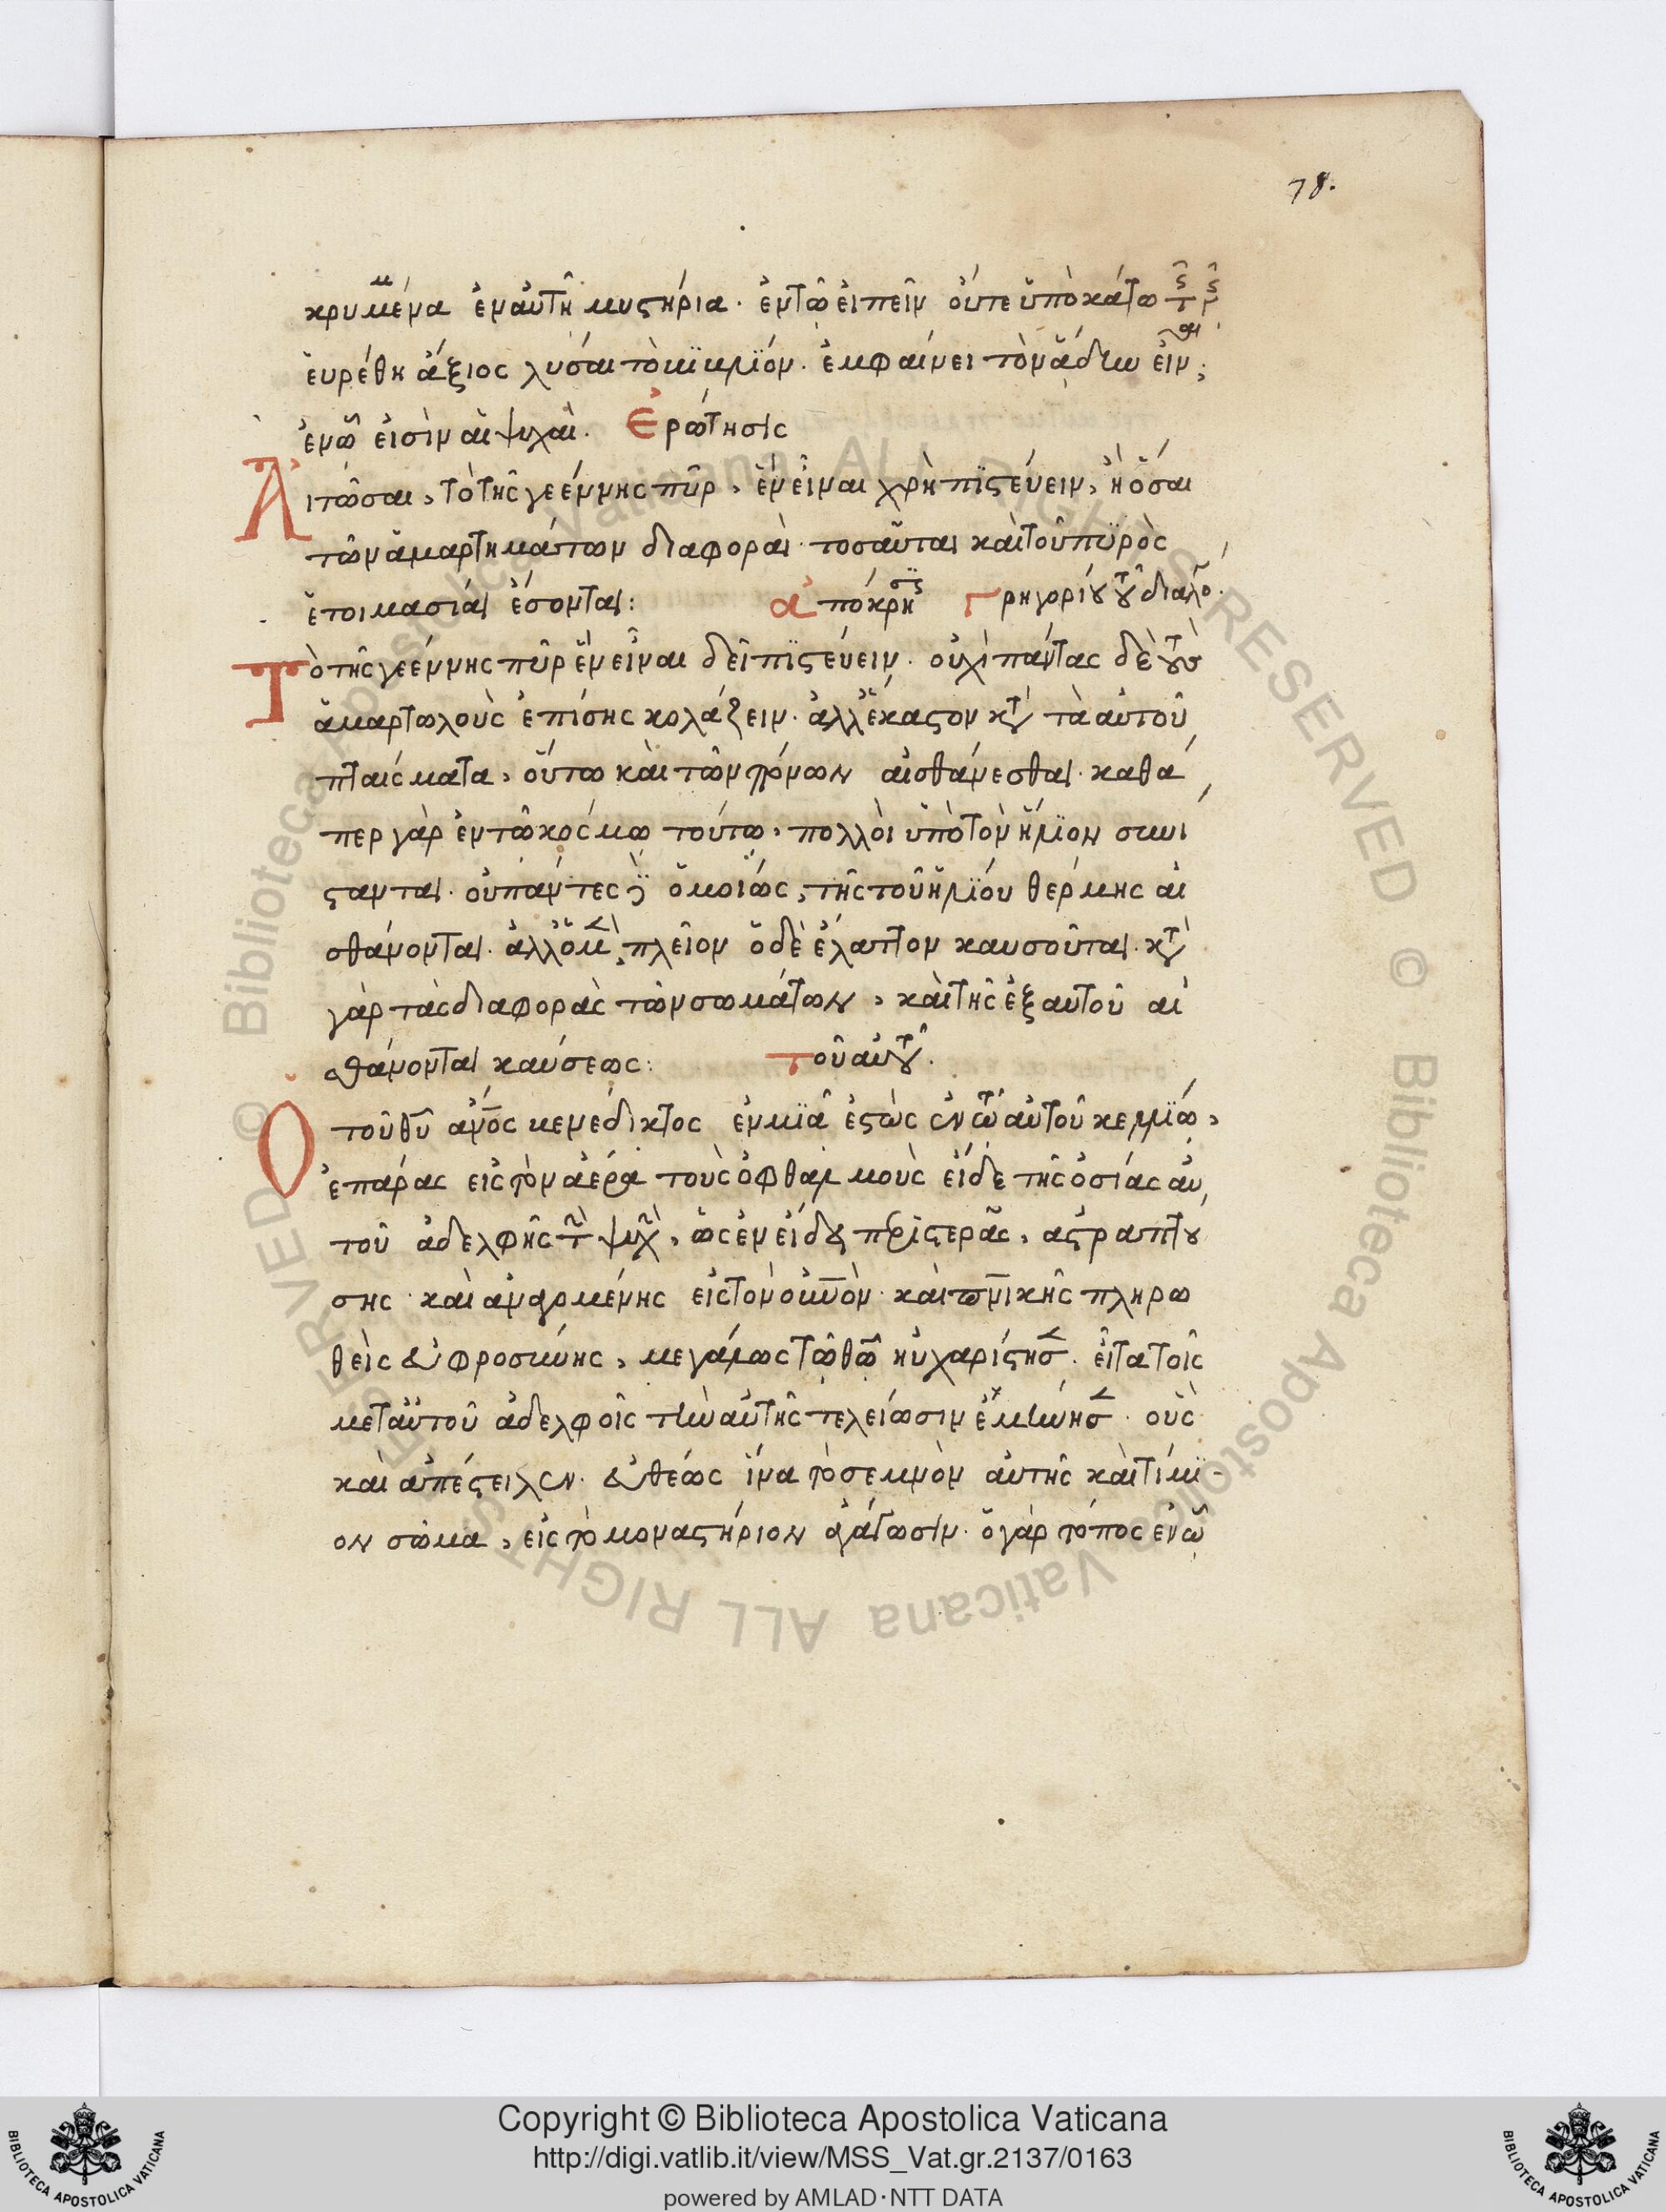 78.
κρυμμένα ἐν αὐτῆ μυστήρια· ἐν τῶ εἰπεῖν οὔτε ὑποκάτω τῆς γῆς
εὑρέθη ἄξιος λῦσαι τὸ βιβλίον· ἐμφαίνει τὸν ἅδην εἶναι;
ἐν ὧ εἰσὶν αἱ ψυχαί. Ἐρώτησις
Ἆ πῶσαι, τὸ τῆς γεέννης πῦρ, ἓν εἶναι χρὴ πιστεύειν, ἢ ὅσαι
τῶν ἁμαρτημάτων διαφοραὶ· τοσαῦται καὶ τοῦ πυρὸς
ἑτοιμασίαι ἔσονται: ἀπόκρησις Γρηγορίου τοῦ διαλό.
Τὸ τῆς γεέννης πῦρ ἓν εἶναι δεῖ πιστεύειν· οὐχὶ πάντας δὲ τοὺς
ἁμαρτωλοὺς ἐπίσης κολάζειν· ἀλλ' ἕκαστον κατὰ τὰ αὐτοῦ
πταίσματα, οὕτω καὶ τῶν πόνων αἰσθάνεσθαι· καθά
περ γὰρ ἐν τῶ κόσμω τούτω, πολλοὶ ὑπὸ τὸν ἥλιον συνι
στανται· οὐ πάντες δὲ ὁμοίως, τῆς τοῦ ἡλίου θέρμης αἰ
σθάνονται· ἀλλ' ὁ μὲν πλεῖον ὁ δὲ ἔλαττον καυσοῦται· κατὰ
γὰρ τὰς διαφορὰς τῶν σωμάτων, καὶ τῆς ἐξ αὐτοῦ αἰ
σθάνονται καύσεως: τοῦ αὐτοῦ.
Ὁ τοῦ θυ ανος βενέδικτος ἐν μιᾶ ἑστὼς ἐν τῶ αὐτοῦ κελλίω,
ἐπάρας εἰς τὸν ἀέρα τοὺς ὀφθαλμοὺς εἶδε τῆς ὁσίας αὐ
τοῦ ἀδελφῆς τὴν ψυχὴν, ὡς ἐν εἴδει περιστερᾶς, ἀστραπτού
σης καὶ ἀνερχομένης εἰς τὸν ουνον· καὶ πνικῆς πληρω
θεὶς εὐφροσύνης, μεγάλως τῶ θω ηὐχαρίστησεν· εἶτα τοῖς
μετ' αὐτοῦ ἀδελφοῖς τὴν αὐτῆς τελείωσιν ἐμήνυσεν· οὓς
καὶ ἀπέστειλεν· εὐθέως ἵνα τὸ σεμνὸν αὐτῆς καὶ τίμι-
ον σῶμα, εἰς τὸ μοναστήριον ἀγάγωσιν· ὁ γὰρ τόπος ἐν ὧ
© Biblioteca Apostolica Vaticana ALL RIGHTS RESERVED © Biblioteca Apostolica Vaticana ALL RIGHTS RESERVED
Copyright © Biblioteca Apostolica Vaticana
http://digi.vatlib.it/view/MSS_Vat.gr.2137/0163
powered by AMLAD·NTT DATA
BIBLIOTECA APOSTOLICA VATICANA
BIBLIOTECA APOSTOLICA VATICANA